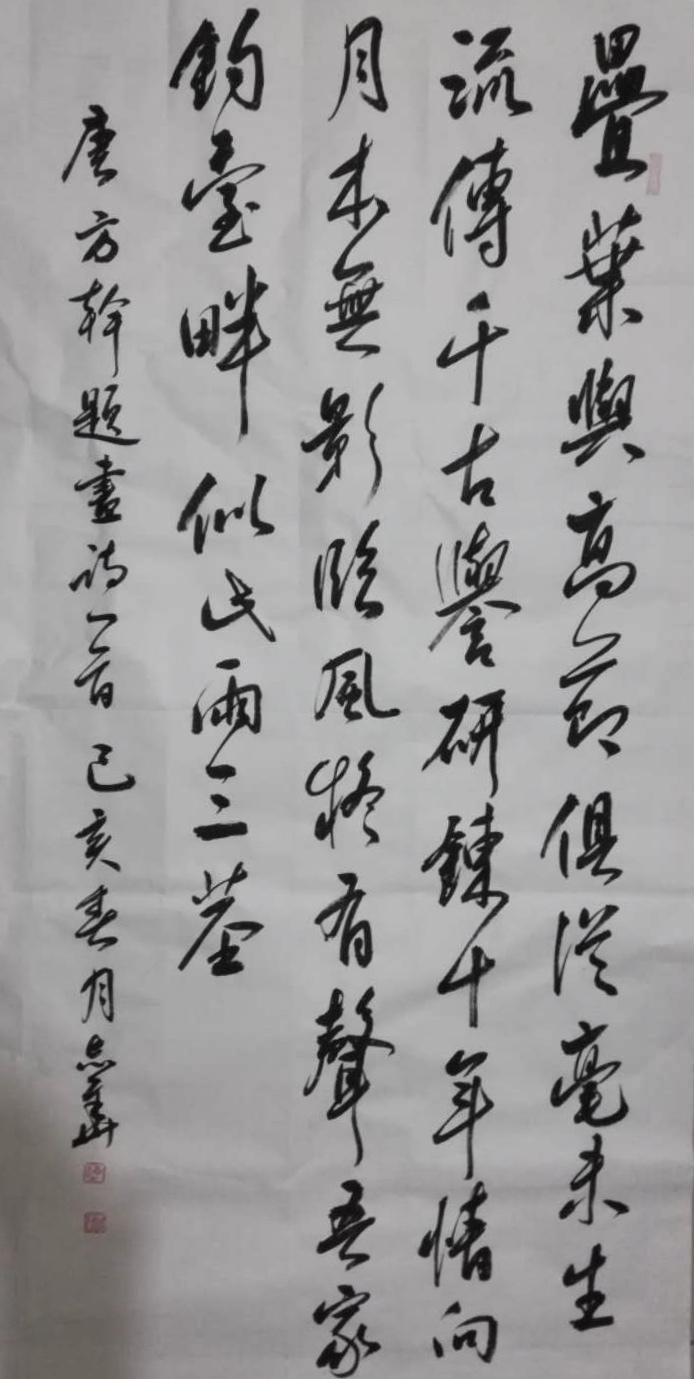 疊葉與高節俱從毫末生
流傳千古譽研鍊十年情向
月本無影臨風疑有聲吾家
釣臺畔似此兩三莖
唐方幹題畫詩一首己亥春月